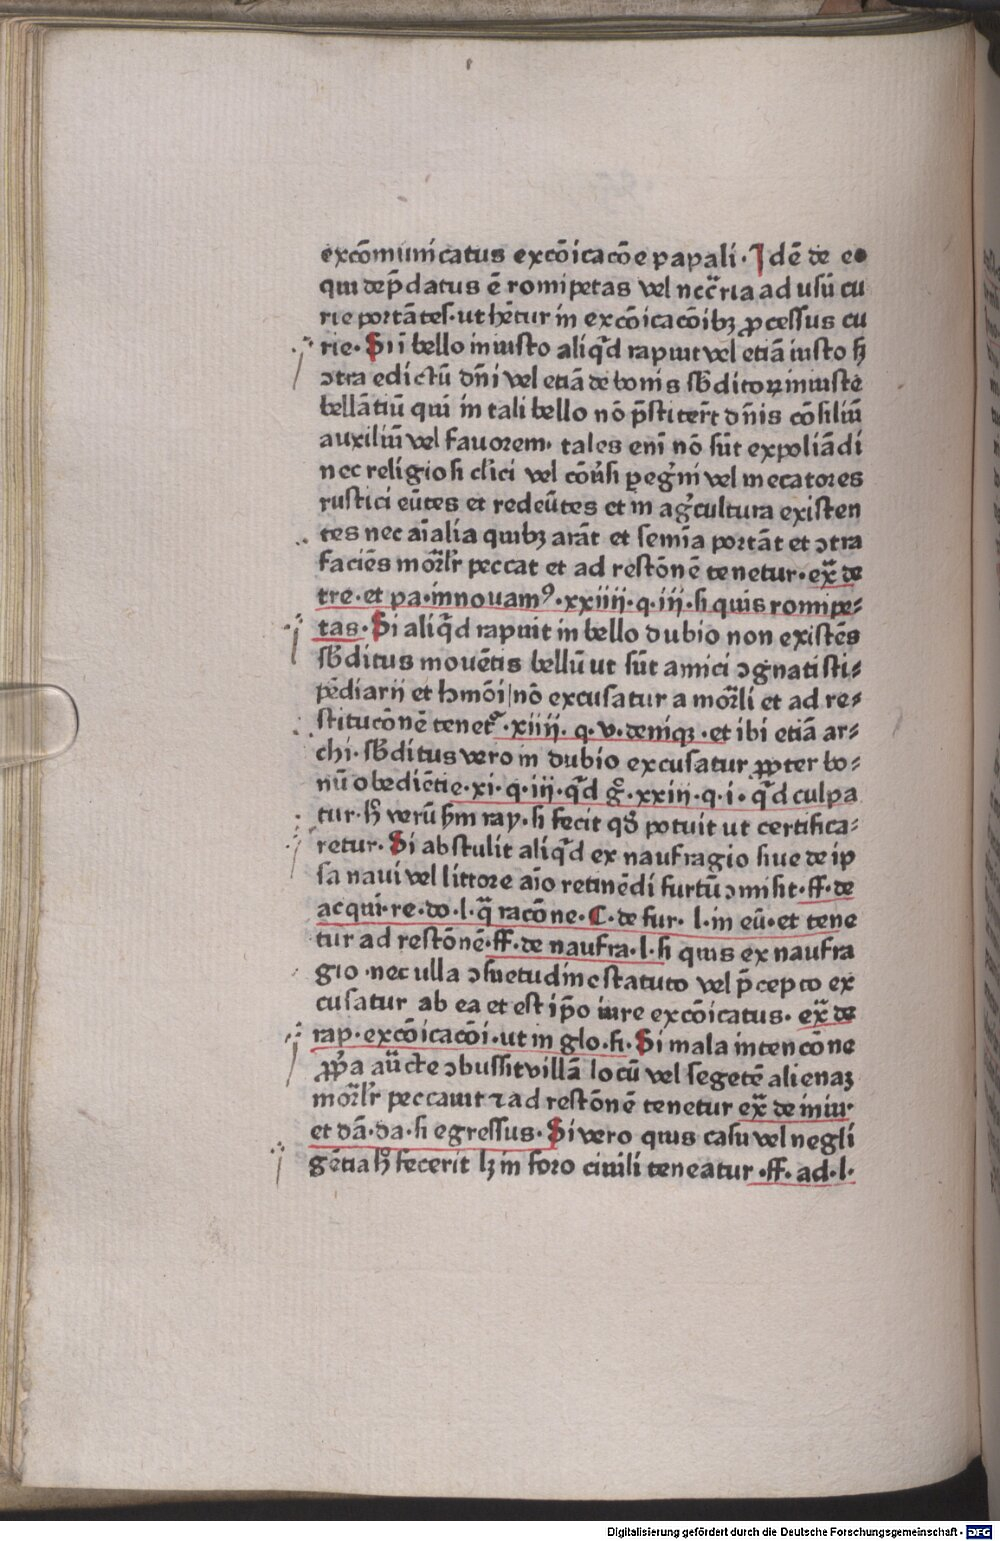 excōmunicatus excōicacōe papali. Idē de eo
qui dep̄datus ē romipetas vel nc̄c̄ria ad usū cu
rie portātes. ut hētur in excōicacōibꝫ ꝓcessus cu
rie. Si ī bello iniusto aliq̄d rapuit vel etiā iusto sꝫ
ɔtra edictū dn̄i vel etiā de bonis sb̄ditoꝝ iniuste
bellātiū qui in tali bello nō p̄stiter̄t dn̄is cōsiliū
auxiliū vel fauorem. tales eni nō sūt expoliādi
nec religiosi cl̄ici vel cōūsi ꝑegr̄ni vel mecatores
rustici eūtes et redeūtes et in agr̄cultura existen
tes nec aīalia quibꝫ arāt et semīa portāt et ɔtra
faciēs mor̄lr̄ peccat et ad restōnē tenetur. ex̄ de
tre. et pa. innouamꝰ. xxiiii. q. iii. si quis romipe-
tas. Si aliq̄d rapuit in bello dubio non existēs
sb̄ditus mouētis bellū ut sūt amici ɔgnati sti-
pēdiarii et hmōi nō excusatur a mor̄li et ad re-
stitucōnē tenet᷑. xiiii. q. v. deniqꝫ. et ibi etiā ar-
chi. sb̄ditus vero in dubio excusatur ꝓpter bo-
nū obediētie. xi. q. iii. q̄d gͦ. xxiii. q. i. q̄d culpa
tur. hͦ verū sm̄ ray. si fecit qd̄ potuit ut certifica-
retur. Si abstulit aliq̄d ex naufragio siue de ip
sa naui vel littore aīo retinēdi furtū ɔmisit. ff. de
acqui. re. do. l. q̄ racōne. C. de fur. l. in eū. et tene
tur ad restōnē. ff. de naufra. l. si quis ex naufra
gio. nec ulla ɔsuetudine statuto vel p̄cepto ex
cusatur ab ea et est ip̄o iure excōicatus. ex̄ de
rap. excōicacōi. ut in glo. fi. Si mala intencōne
ꝓp̄a auc̄te ɔbussit villā locū vel segetē alienaꝫ
mor̄lr̄ peccauit ⁊ ad restōnē tenetur ex̄ de iniu.
et dā. da. si egressus. Si vero quis casu vel negli
gētia hͦ fecerit lꝫ in foro ciuili teneatur. ff. ad. l.
Digitalisierung gefördert durch die Deutsche Forschungsgemeinschaft - DFG